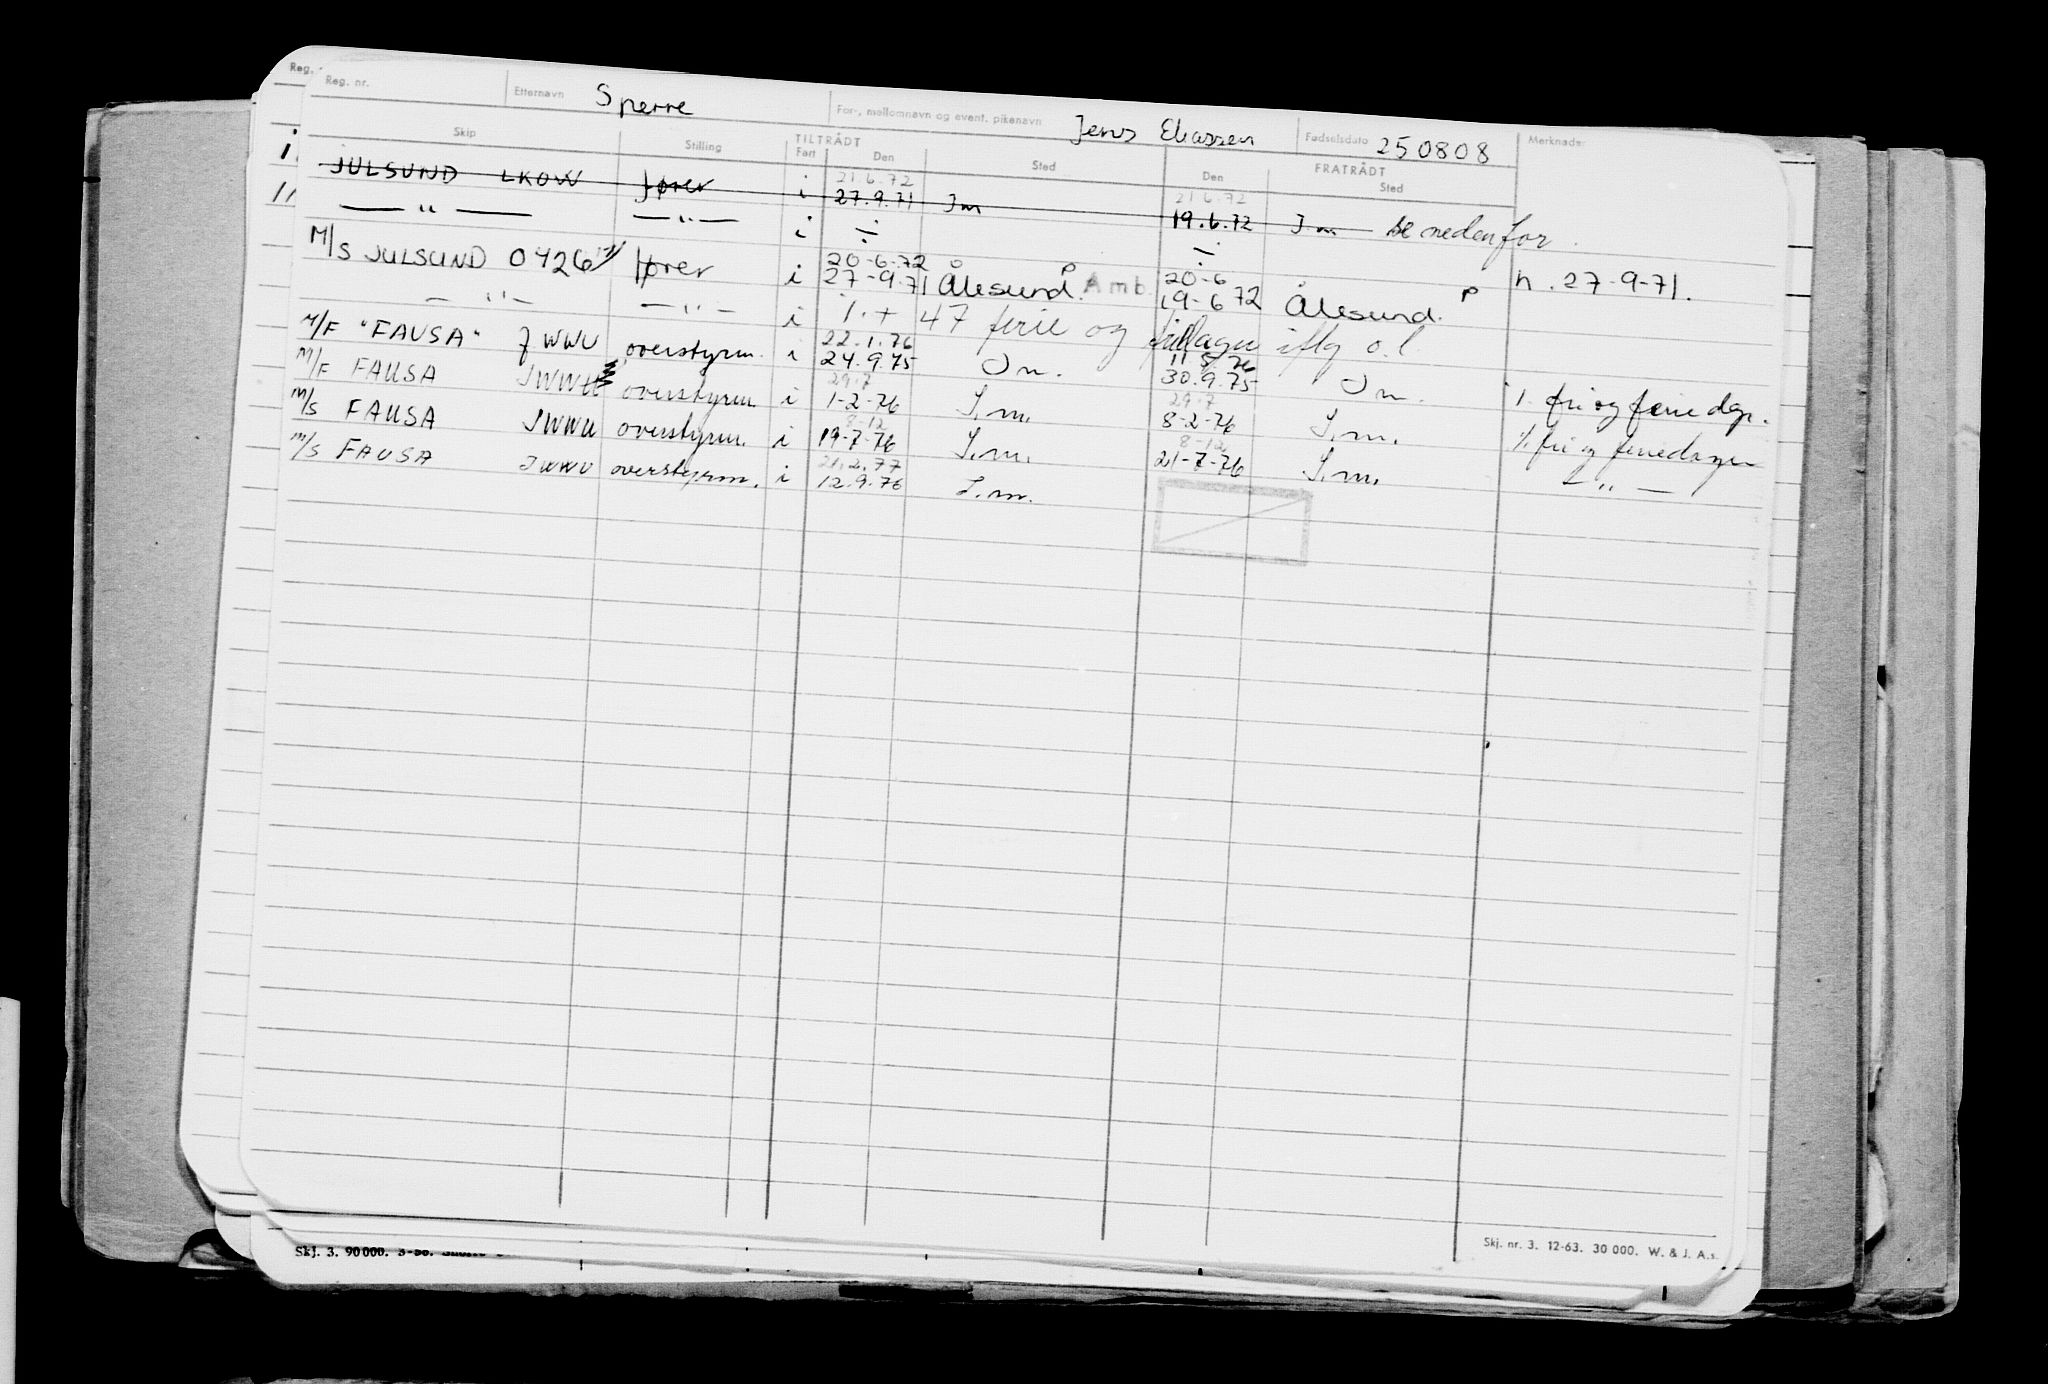 Reg.
Reg. nr. Etternavn Sperre For-, mellomnavn og event. pikenavn Jens Eliassen Fødselsdato 250808 Merknader
Skip Stilling TILTRÅDT FRATRÅDT
Fart Den Sted Den Sted
21.6.72 21.6.72
JULSUND LKOW fører i 27.9.71 Im 19.6.72 I.m se nedenfor.
— " — — " — i ÷ ÷
20-6-72 20-6
M/S JULSUND 0426 fører i 27-9-71 Ålesund. P Amb. 19-6 72 Ålesund. P n. 27-9-71.
— " — — " — i 1.+ 47 ferie og fridager iflg o.l.
22.1.76
M/F "FAUSA" JWWU overstyrm. i 24.9.75 Im. 30.9.75 Im. ÷ fri og feriedgr.
29.7 29.7
M/F FAUSA JWWU overstyrm. i 1-2-76 I.m. 8-2-76 I.m. ÷ fri og feriedager
8-12 8-12
M/S FAUSA JWWU overstyrm. i 19-7-76 I.m. 21-7-76 I.m. — " —
21.2.77
M/S FAUSA JWWU overstyrm. i 12.9.76 I.m.
Skj. 3. 90000. 3-56.
Skj. nr. 3. 12-63. 30 000. W. & J. A.s.